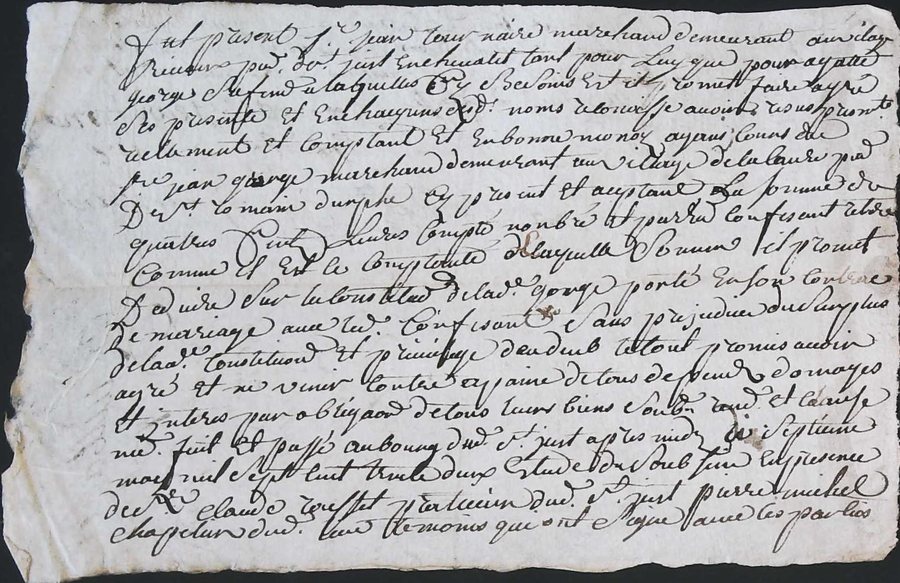 fut present sr jean tournaire marchand demeurant au village
psse de st just en chevalet tant pour luy que pour agatte
george sa femme a laquelle sy besoins est il promet faire agréé
ses presente et en chacyuns desds noms reconesse avoir resus presentt
rellement et comptant et en bonne monoy ayans cours de
sre jean george marchand demeurant au village de psse
de st romain durphe cy present et aceptant la somme de
quattres livres compté nonbré et par led confesant retiré
comme il est le comptenté de laquelle somme il promet
sur la constituon de lade george porté en son contrac
de mariage avec led confesant sans prejudice du surplus
de lade constitution et privilege le tout promis avoir
agré et ne venir contre a paine de tous despends domages
et interes par obligaon de tous leurs biens et
fait et passé au bourg dud st just apres midy le septieme
may mil sept cent trente deux estude du soubsine en presence
de sre claude praticien dud st just pierre michel
dud lieu temoins qui ont signé avec les parties